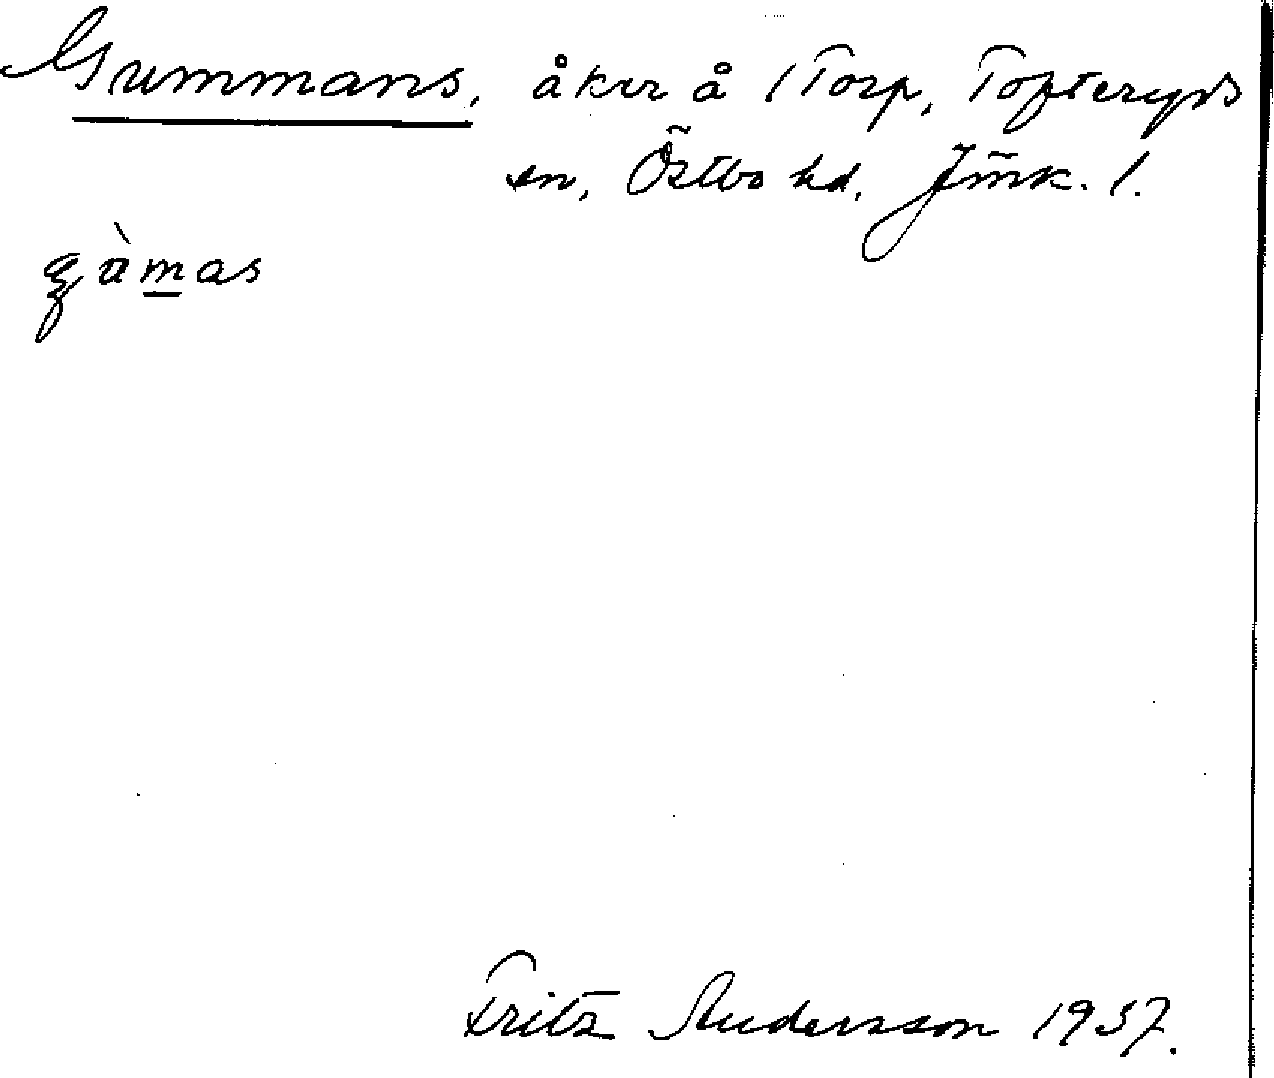 Gummans, åker å 1 Torp, Tofteryds
sn, Östbo hd, Jmk. l.
gàmas
Fritz Andersson 1937.